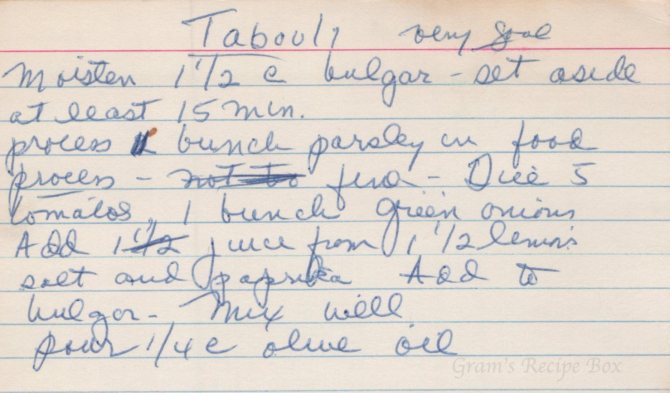 Tabouli very good
Moisten 1 1/2 c bulgar - set aside
at least 15 min.
process 1 bunch parsley in food
process - not too fine - Dice 5
tomatos, 1 bunch green onions
Add 1 1/2 juice from 1 1/2 lemons
salt and paprika Add to
bulgar - Mix well
pour 1/4 c olive oil
Gram's Recipe Box